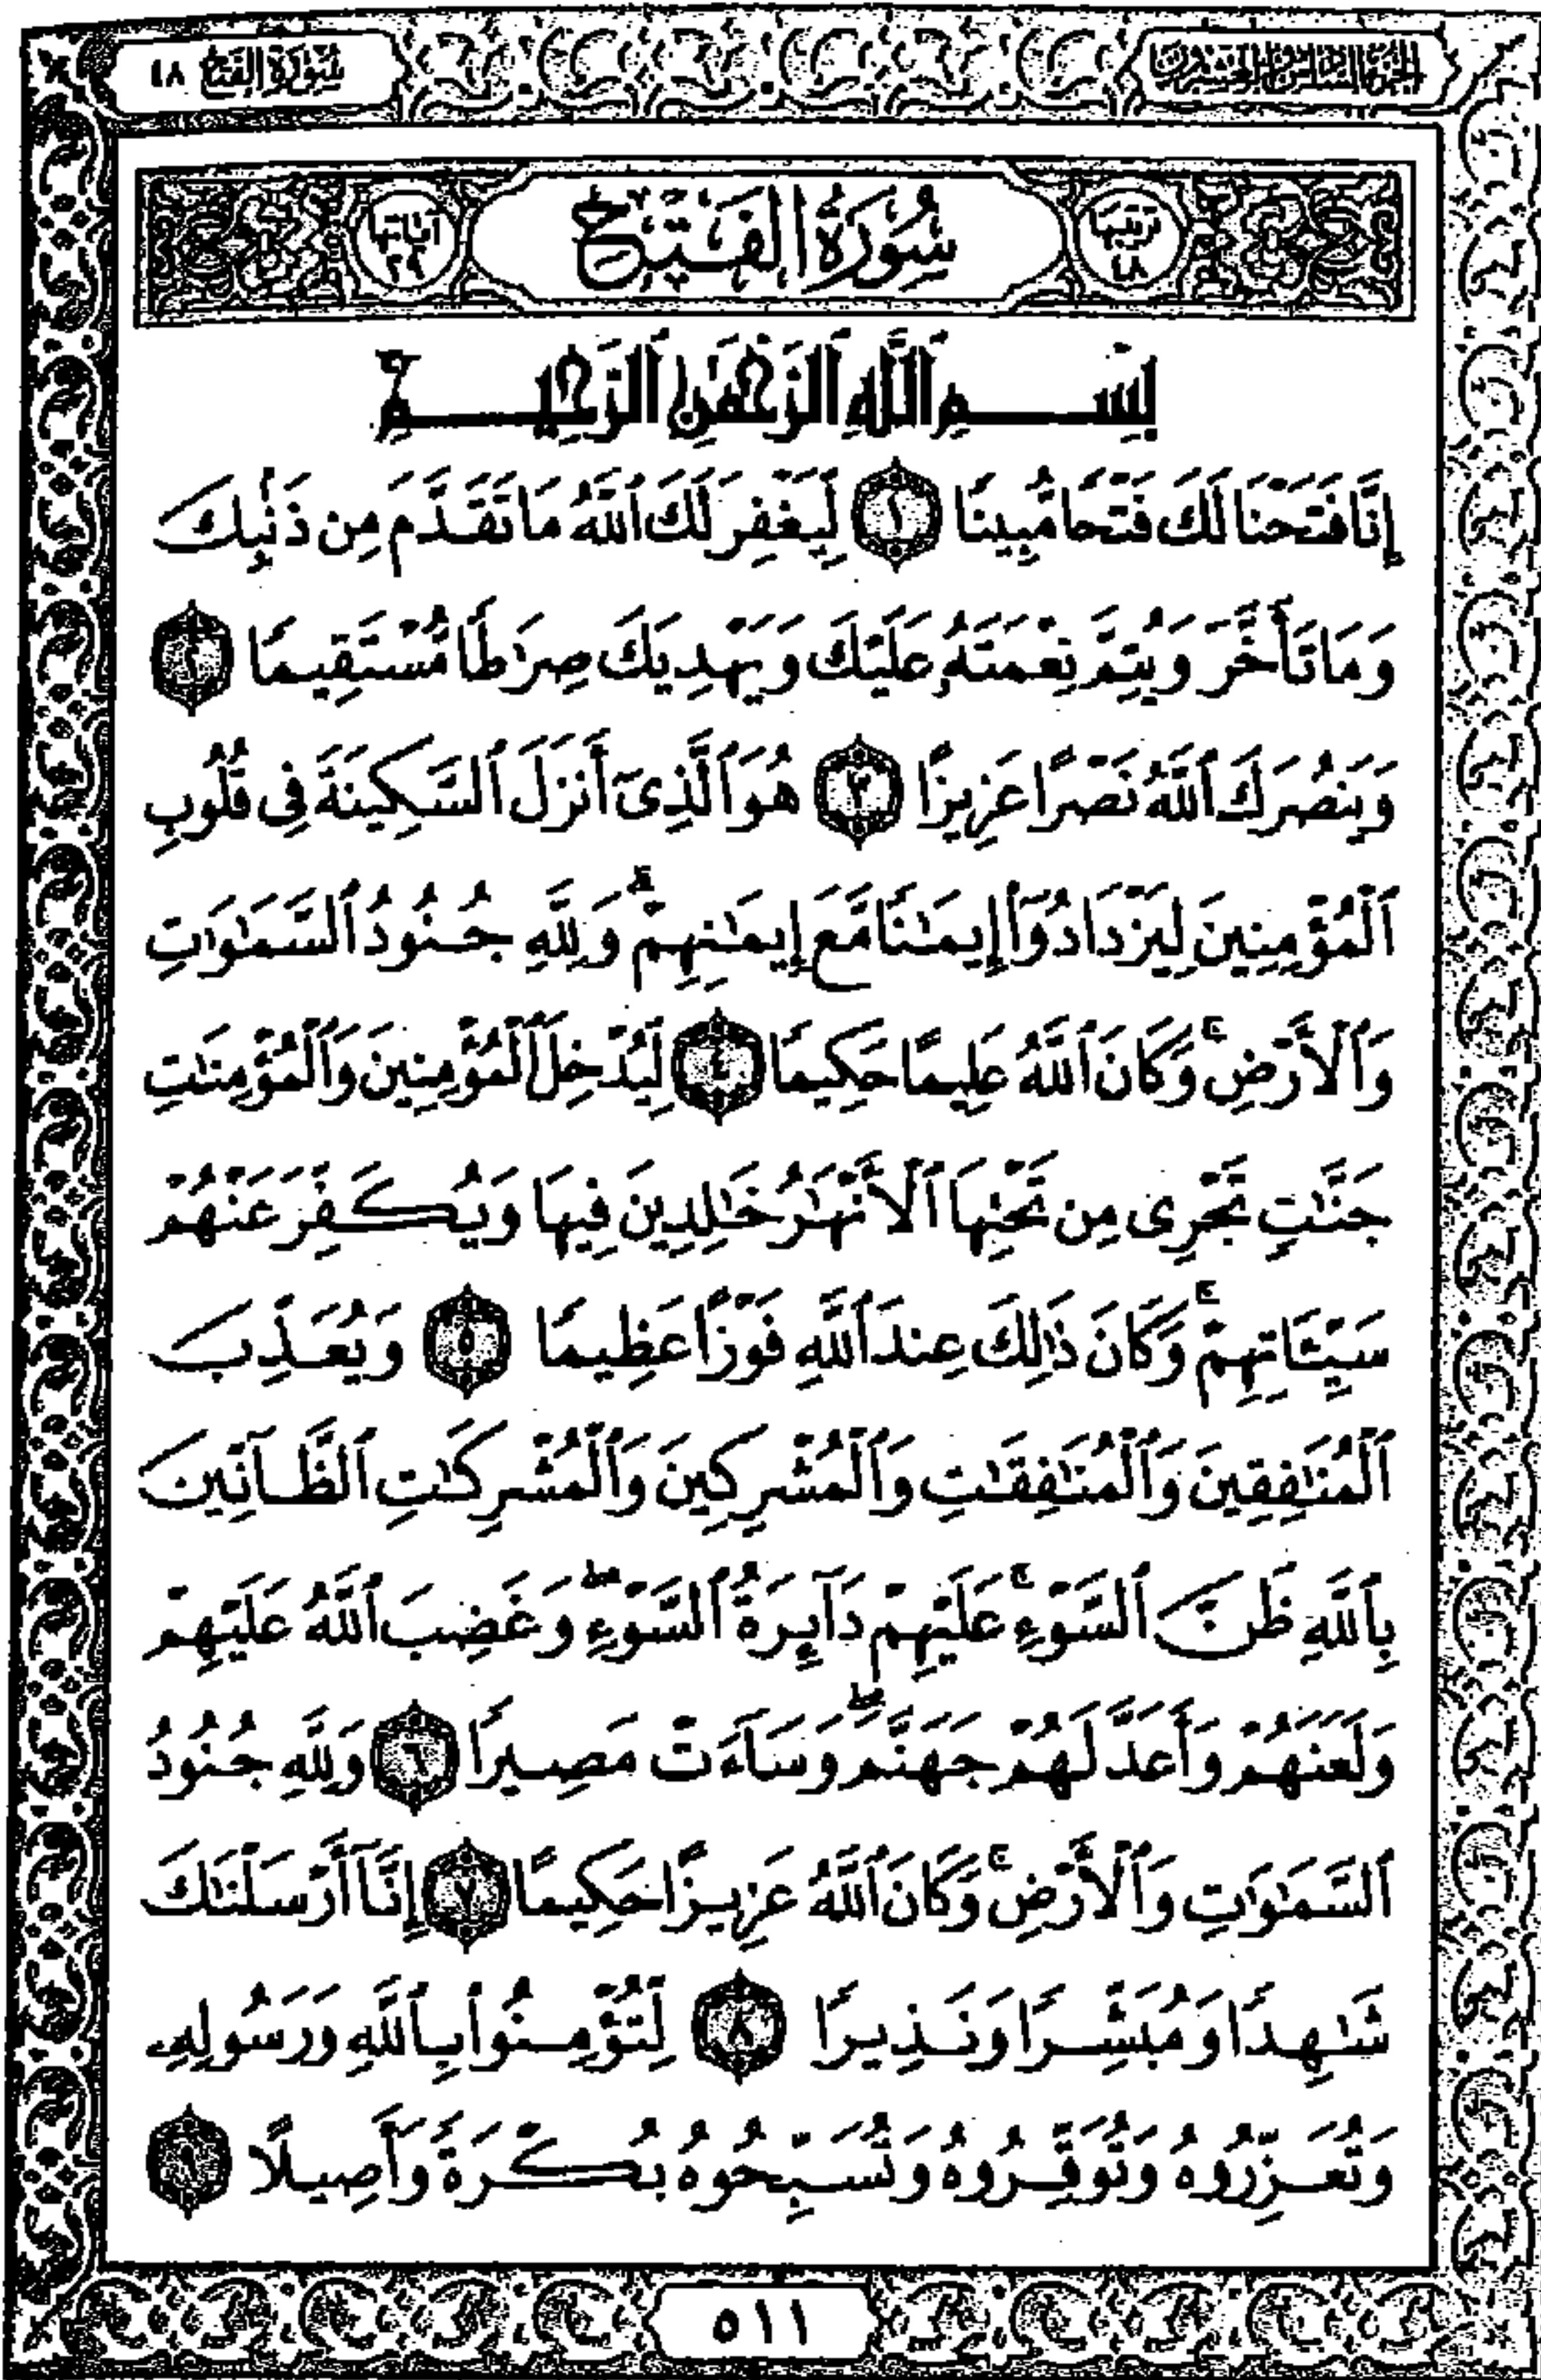 الجزء السادس والعشرون
سورة الفتح ٤٨
ترتيبها ٤٨
سُورَةُ الفَتْح
آياتها ٢٩
بِسْمِ ٱللَّهِ ٱلرَّحْمَٰنِ ٱلرَّحِيمِ
إِنَّا فَتَحْنَا لَكَ فَتْحًا مُّبِينًا ١ لِّيَغْفِرَ لَكَ ٱللَّهُ مَا تَقَدَّمَ مِن ذَنۢبِكَ
وَمَا تَأَخَّرَ وَيُتِمَّ نِعْمَتَهُۥ عَلَيْكَ وَيَهْدِيَكَ صِرَٰطًا مُّسْتَقِيمًا ٢
وَيَنصُرَكَ ٱللَّهُ نَصْرًا عَزِيزًا ٣ هُوَ ٱلَّذِىٓ أَنزَلَ ٱلسَّكِينَةَ فِى قُلُوبِ
ٱلْمُؤْمِنِينَ لِيَزْدَادُوٓا۟ إِيمَٰنًا مَّعَ إِيمَٰنِهِمْ ۗ وَلِلَّهِ جُنُودُ ٱلسَّمَٰوَٰتِ
وَٱلْأَرْضِ ۚ وَكَانَ ٱللَّهُ عَلِيمًا حَكِيمًا ٤ لِّيُدْخِلَ ٱلْمُؤْمِنِينَ وَٱلْمُؤْمِنَٰتِ
جَنَّٰتٍ تَجْرِى مِن تَحْتِهَا ٱلْأَنْهَٰرُ خَٰلِدِينَ فِيهَا وَيُكَفِّرَ عَنْهُمْ
سَيِّـَٔاتِهِمْ ۚ وَكَانَ ذَٰلِكَ عِندَ ٱللَّهِ فَوْزًا عَظِيمًا ٥ وَيُعَذِّبَ
ٱلْمُنَٰفِقِينَ وَٱلْمُنَٰفِقَٰتِ وَٱلْمُشْرِكِينَ وَٱلْمُشْرِكَٰتِ ٱلظَّآنِّينَ
بِٱللَّهِ ظَنَّ ٱلسَّوْءِ ۚ عَلَيْهِمْ دَآئِرَةُ ٱلسَّوْءِ ۖ وَغَضِبَ ٱللَّهُ عَلَيْهِمْ
وَلَعَنَهُمْ وَأَعَدَّ لَهُمْ جَهَنَّمَ ۖ وَسَآءَتْ مَصِيرًا ٦ وَلِلَّهِ جُنُودُ
ٱلسَّمَٰوَٰتِ وَٱلْأَرْضِ ۚ وَكَانَ ٱللَّهُ عَزِيزًا حَكِيمًا ٧ إِنَّآ أَرْسَلْنَٰكَ
شَٰهِدًا وَمُبَشِّرًا وَنَذِيرًا ٨ لِّتُؤْمِنُوا۟ بِٱللَّهِ وَرَسُولِهِۦ
وَتُعَزِّرُوهُ وَتُوَقِّرُوهُ وَتُسَبِّحُوهُ بُكْرَةً وَأَصِيلًا ٩
٥١١